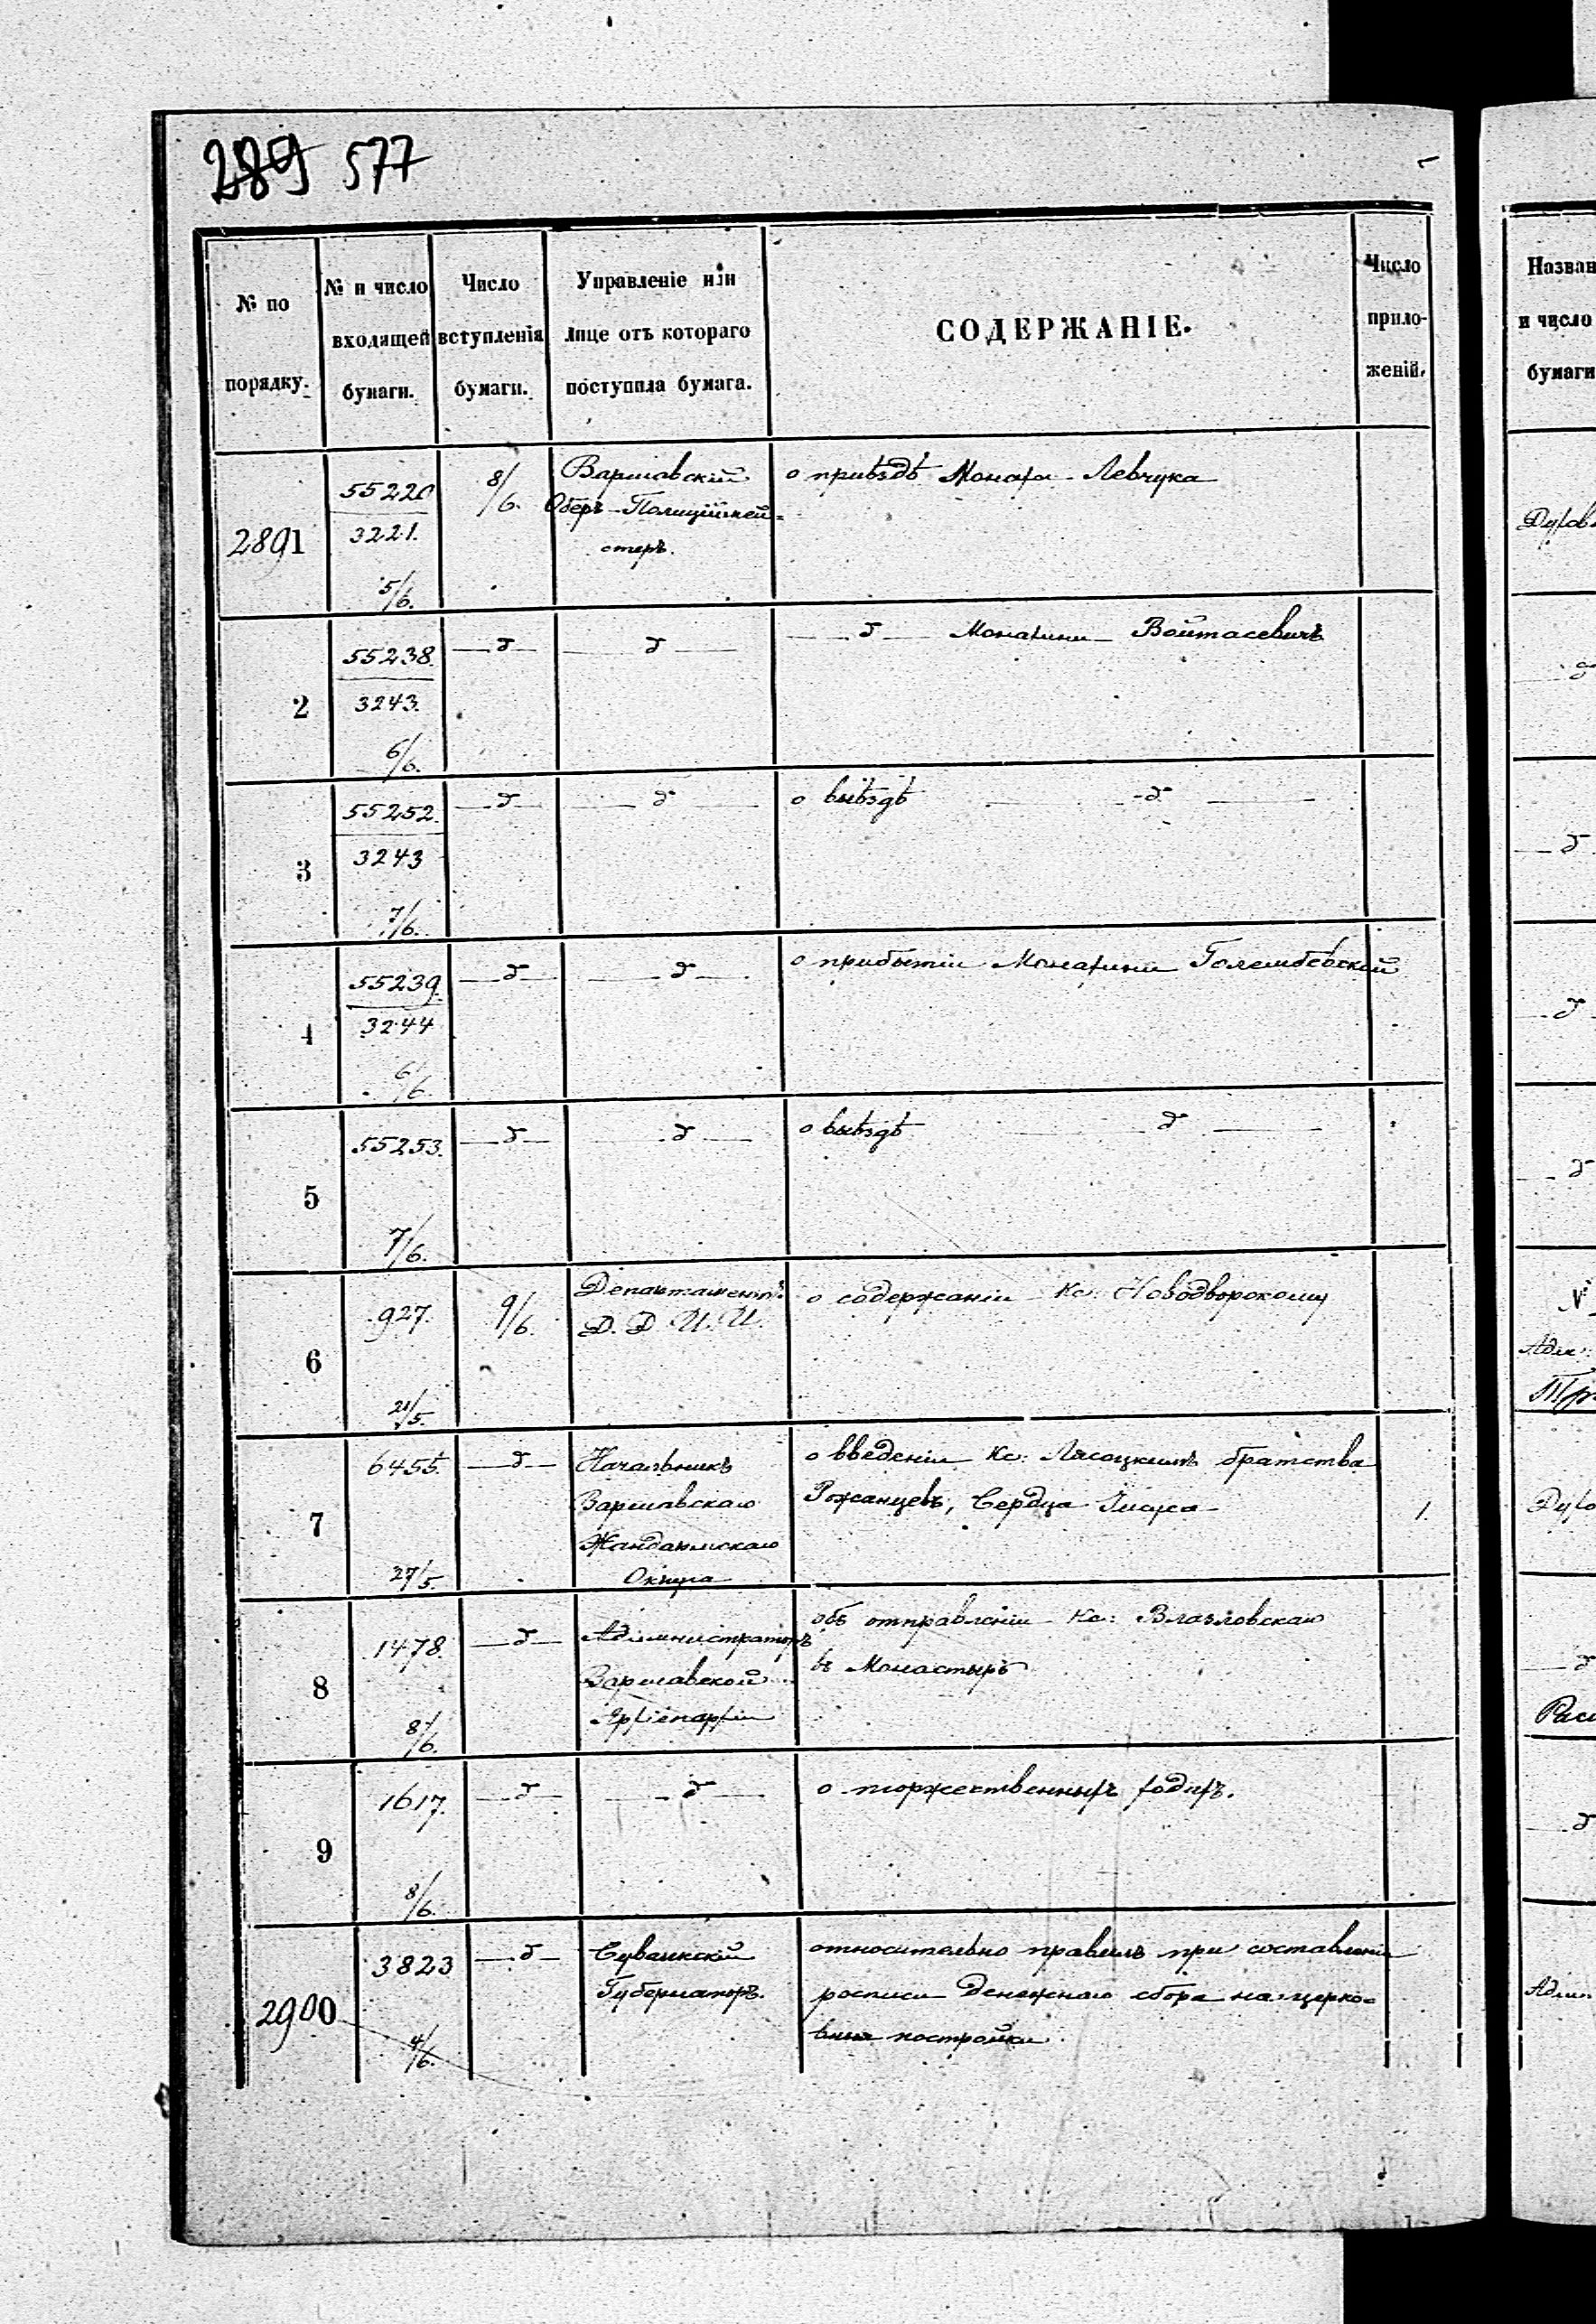 289 577
№ по порядку.
№ и число входящей бумаги.
Число вступленія бумаги.
Управленіе или лице отъ котораго поступила бумага.
СОДЕРЖАНІЕ.
Число приложеній.
2891
55220
3221.
5/6.
8/6.
Варшавскій
Оберъ-Полиціймей=
стеръ.
о пріѣздѣ Монаха Левчука
2
55238.
3243.
6/6.
—д—
—д—
—д— Монахини Войтасевичъ
3
55252.
3243
7/6.
—д—
—д—
о выѣздѣ —д—
4
55239.
3244
6/6.
—д—
—д—
о прибытіи Монахини Голембевской
5
55253.
7/6.
—д—
—д—
о выѣздѣ —д—
6
927.
21/5.
9/6.
Департаментъ
Д. Д. И. И.
о содержаніи Кс: Новодворскому
7
6455.
27/5.
—д—
Начальникъ
Варшавскаго
Жандармскаго
Округа
о введеніи Кс: Лясоцкимъ братства
Рожанцевъ, Сердца Іисуса
1.
8
1478.
8/6.
—д—
Администраторъ
Варшавской
Архіепархіи
объ отправленіи Кс: Влазловскаго
въ Монастырь
9
1617.
8/6.
—д—
—д—
о торжественныхъ ходахъ.
2900
3823
4/6.
—д—
Сувалкскій
Губернаторъ.
относительно правилъ при составленіи
росписи денежнаго сбора на церко=
вныя постройки.
Назван
и число
бумаги